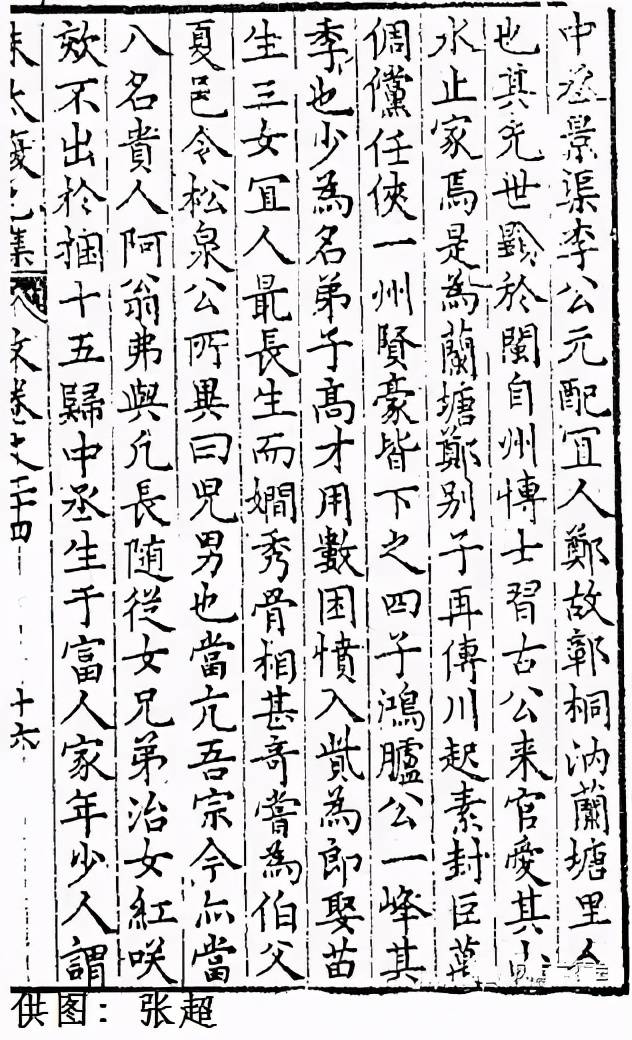 中丞景渠李公元配冝人鄭故鄣桐汭蘭塘里人
也其先世顕於閩自州慱士習古公来官愛其山
水止家焉是為蘭塘鄭别子再傳川起素封巨萬
倜儻任俠一州賢豪皆下之四子鴻臚公一峰其
季也少為名弟子高才用數困憤入貲為郎娶苗
生三女冝人最長生而嫺秀骨相甚奇嘗為伯父
夏邑令松泉公所異曰児男也當亢吾宗今亦當
入名貴人阿翁弗與凡長随從女兄弟治女紅咲
欬不出於捆十五歸中丞生于富人家年少人謂
朱太復乙集 文卷之二十四 十六
供图：张超